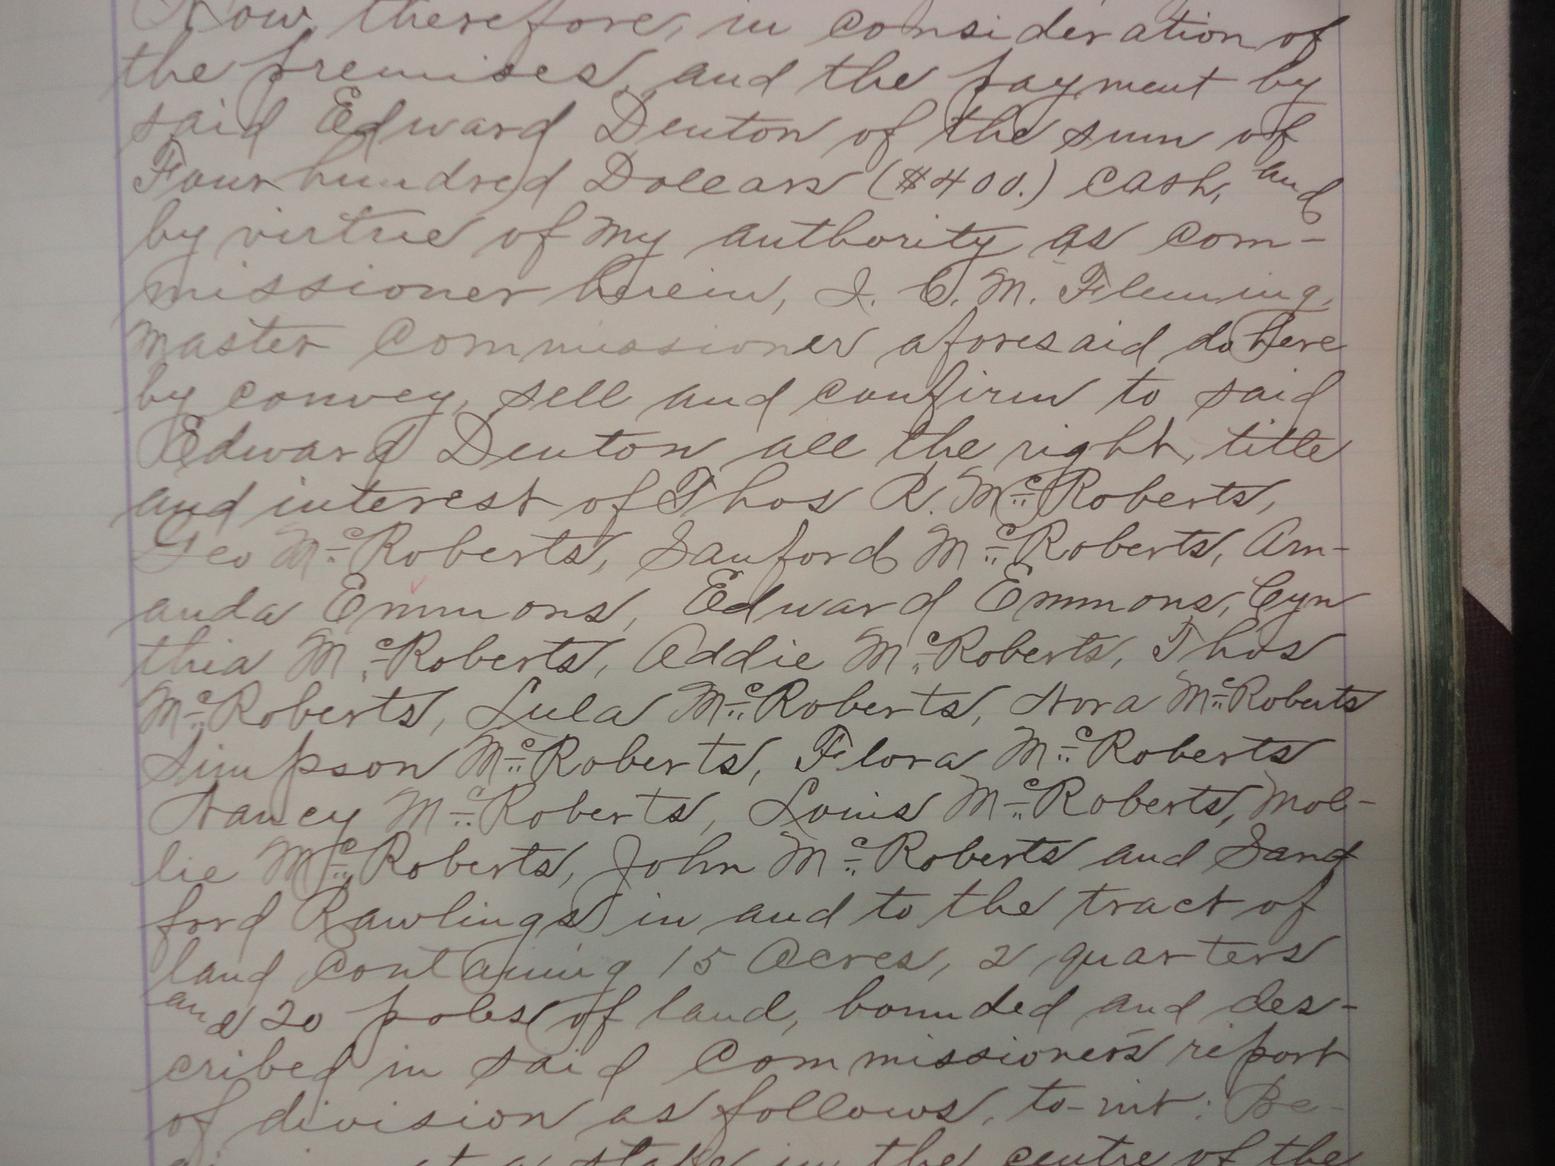 Now, therefore, in consideration of
the premises, and the payment by
said Edward Denton of the sum of
Four hundred Dollars ($400.) cash, and
by virtue of my authority as com-
missioner herein, I. C. M. Fleming,
Master Commissioner aforesaid do here
by convey, sell and confirm to said
Edward Denton all the right, title
and interest of Thos R. McRoberts,
Geo McRoberts, Sanford McRoberts, Am-
anda Emmons, Edward Emmons, Cyn
thia McRoberts, Addie McRoberts, Thos
McRoberts, Lula McRoberts, Nora McRoberts
Simpson McRoberts, Flora McRoberts
Nancy McRoberts, Louis McRoberts, Mol-
lie McRoberts, John McRoberts and Sand
ford Rawlings in and to the tract of
land containing 15 Acres, 2 quarters
and 20 poles of land, bounded and des-
cribed in said Commissioner's report
of division as follows, to-wit: Be-
at a stake in the centre of the